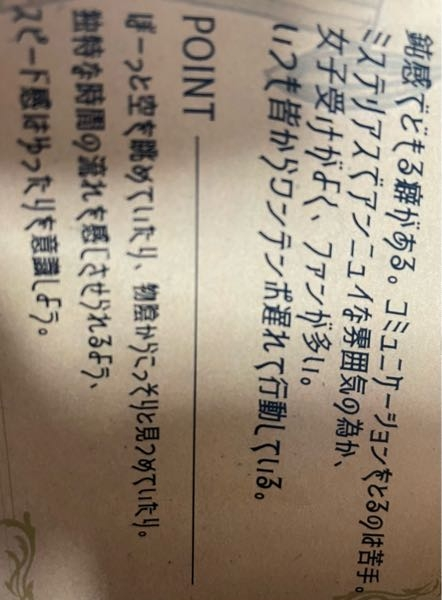 鈍感でどもる癖がある。コミュニケーションをとるのは苦手。
ミステリアスでアンニュイな雰囲気の為か、
女子受けがよく、ファンが多い。
いつも皆からワンテンポ遅れて行動している。
POINT
ぼーっと空を眺めていたり、物陰からこっそりと見つめていたり。
独特な時間の流れを感じさせられるよう、
スピード感はゆったりを意識しよう。